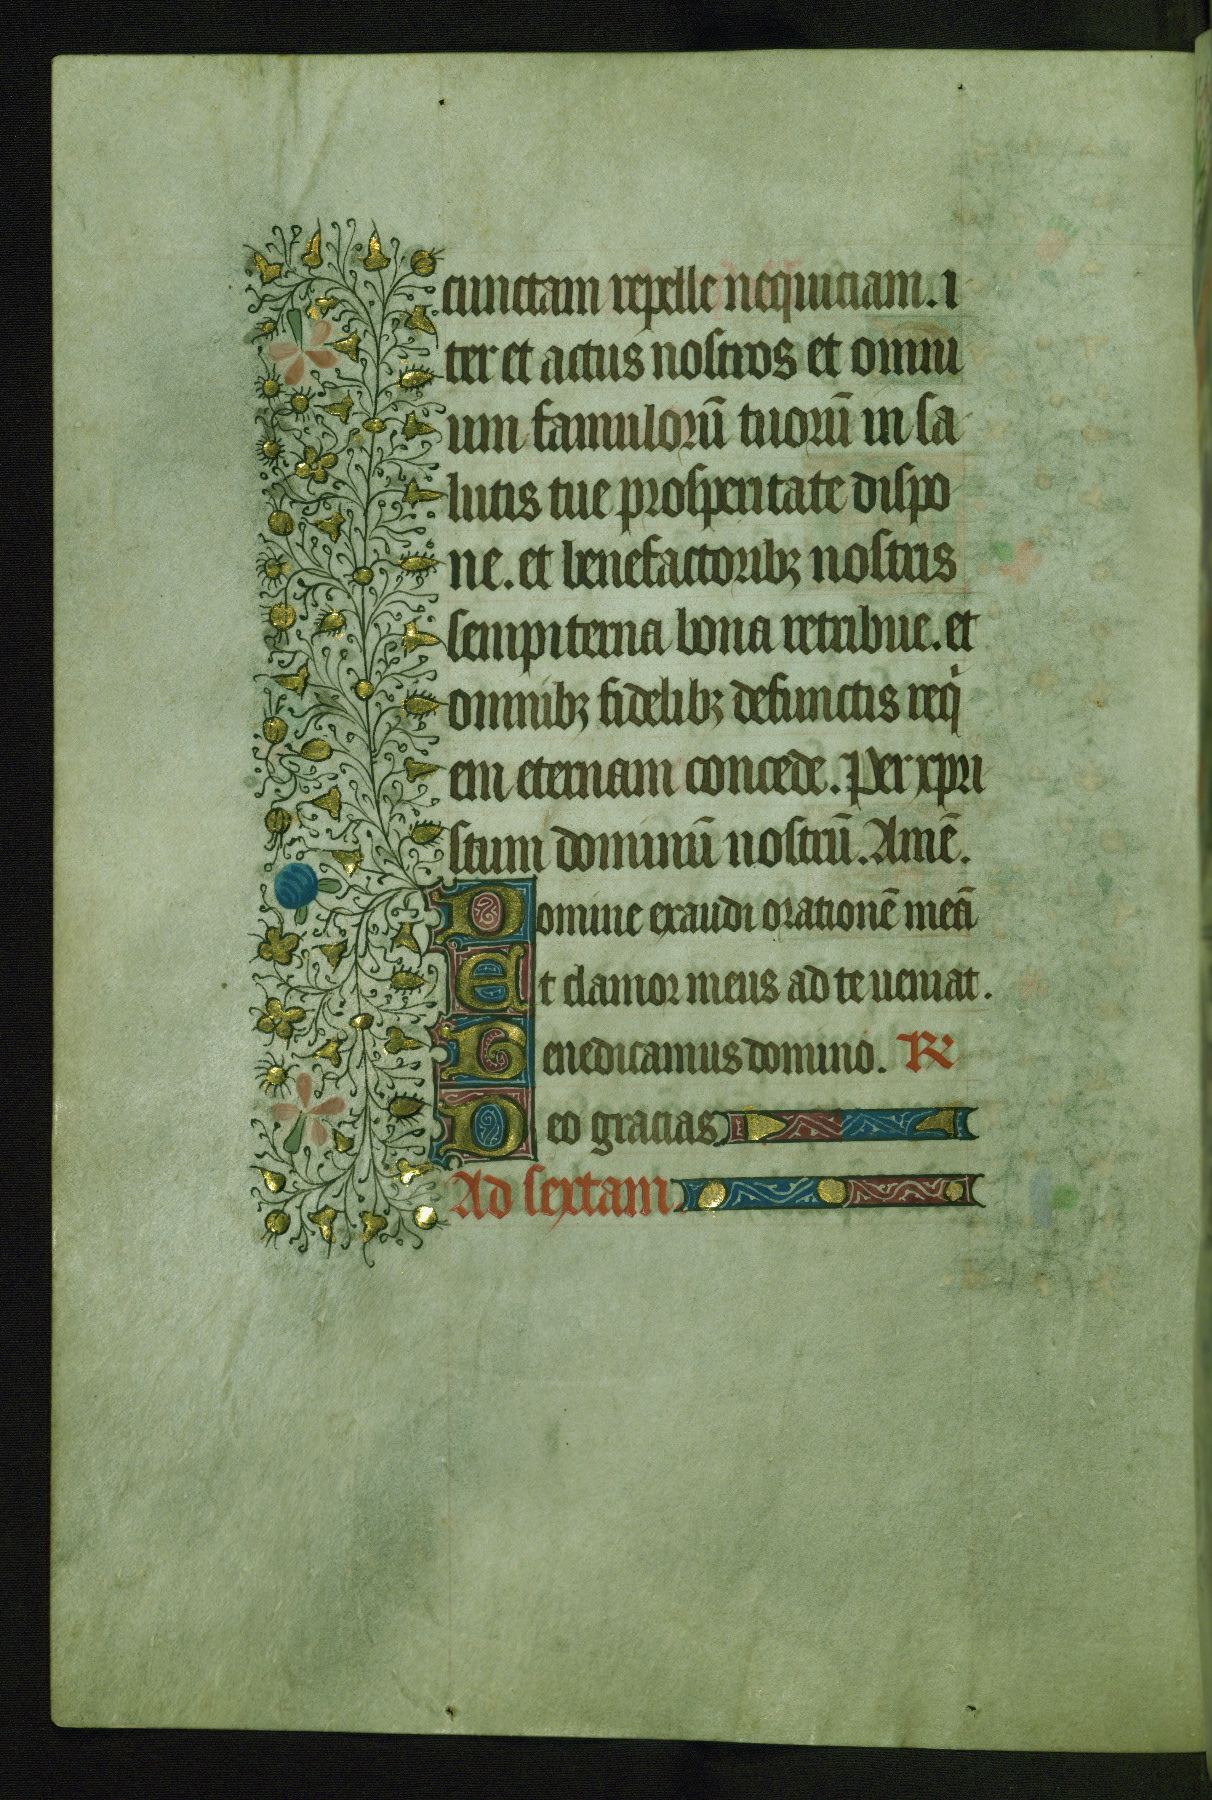 cunctam repelle nequiciam. i
ter et actus nostros et omni
um famulorū tuorū in sa
lutis tue prosperitate dispo
ne. et benefactoribꝫ nostris
sempiterna bona retribue. et
omnibꝫ fidelibꝫ defunctis reqⁱ
em eternam concede. Per xpri
stum dominū nostrū. Amē.
Domine exaudi orationē meā
Et clamor meus ad te ueniat.
Benedicamus domino. R
Deo gracias
Ad sextam